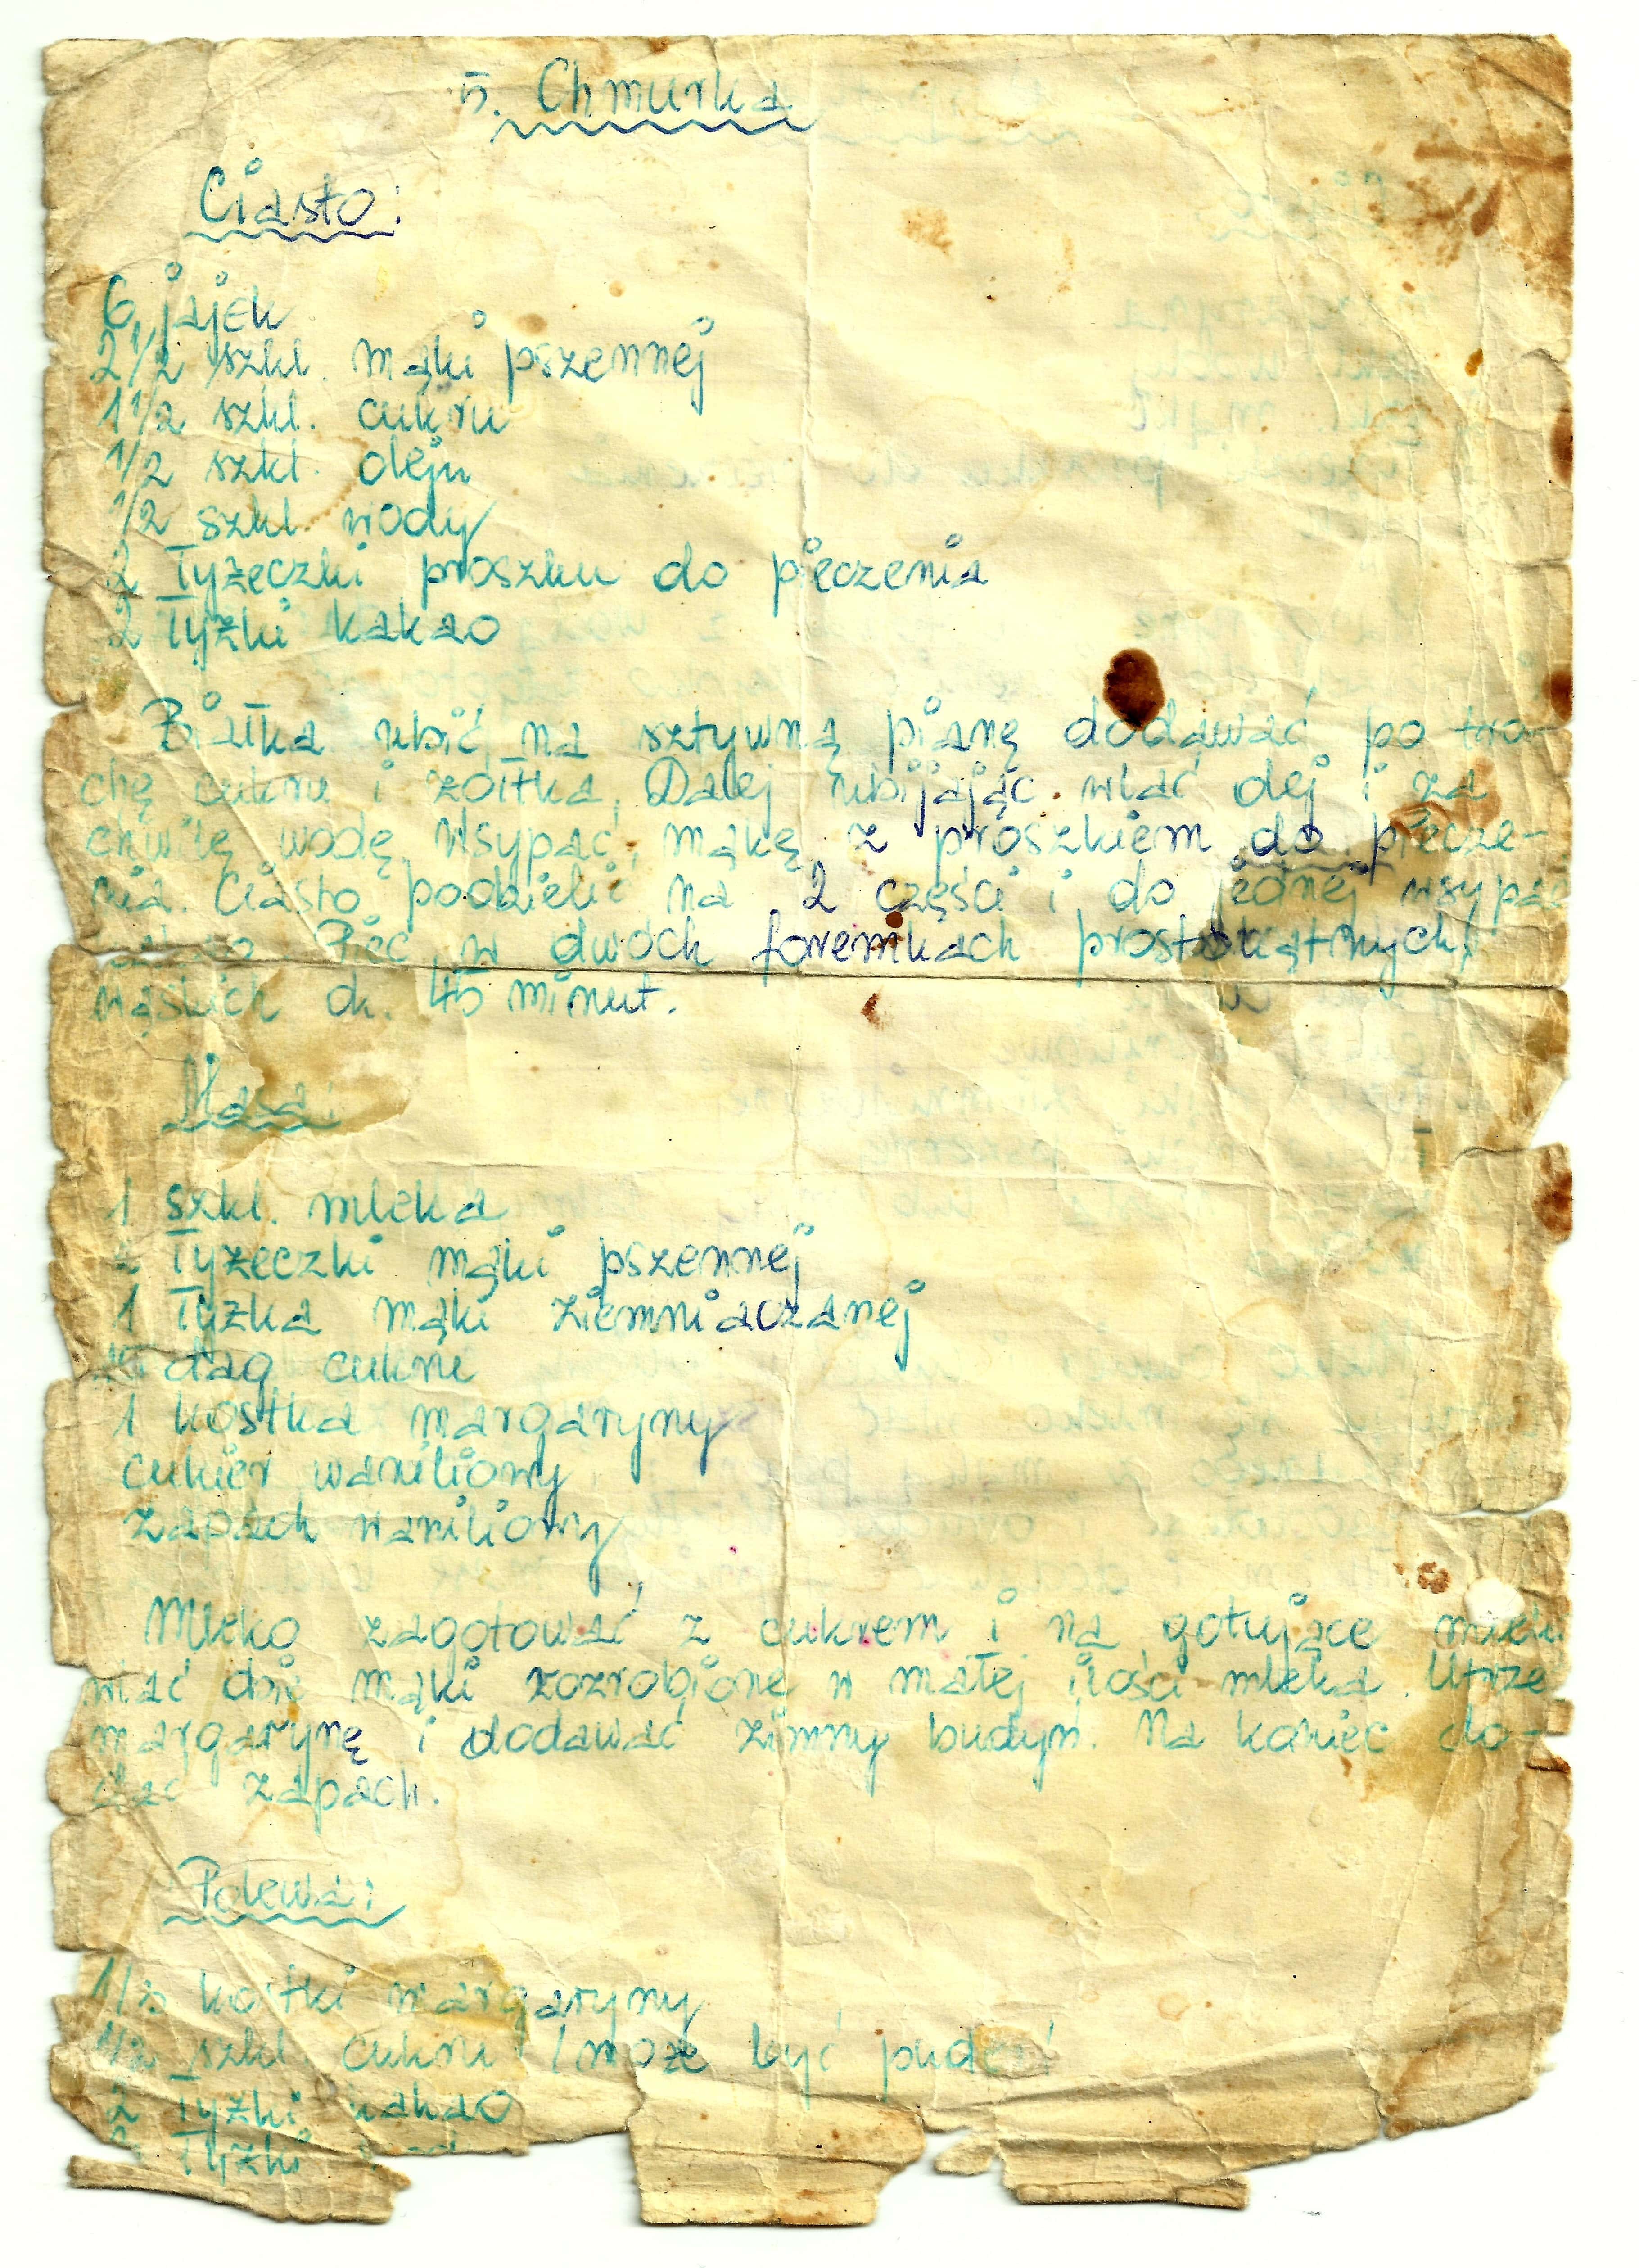 5. Chmurka
Ciasto:
6 jajek
2 1/2 szkl. mąki pszennej
1 1/2 szkl. cukru
1/2 szkl. oleju
1/2 szkl. wody
2 łyżeczki proszku do pieczenia
2 łyżki kakao
Białka ubić na sztywną pianę dodawać po tro-
chę cukru i żółtka. Dalej ubijając wlać olej i za
chwilę wodę. Wsypać mąkę z proszkiem do piecze-
nia. Ciasto podzielić na 2 części i do jednej wsypać
Piec w dwóch foremkach prostokątnych,
wąskich ok. 45 minut.
Masa:
1 szkl. mleka
łyżeczki mąki pszennej
1 łyżka mąki ziemniaczanej
dag cukru
1 kostka margaryny
cukier waniliowy
zapach waniliowy
Mleko zagotować z cukrem i na gotujące
wlać obie mąki rozrobione w małej ilości mleka. Utrze
margarynę i dodawać zimny budyń. Na koniec do-
dać zapach.
Polewa:
kostki margaryny
1/2 szkl. cukru /może być puder/
2 łyżki kakao
łyżki